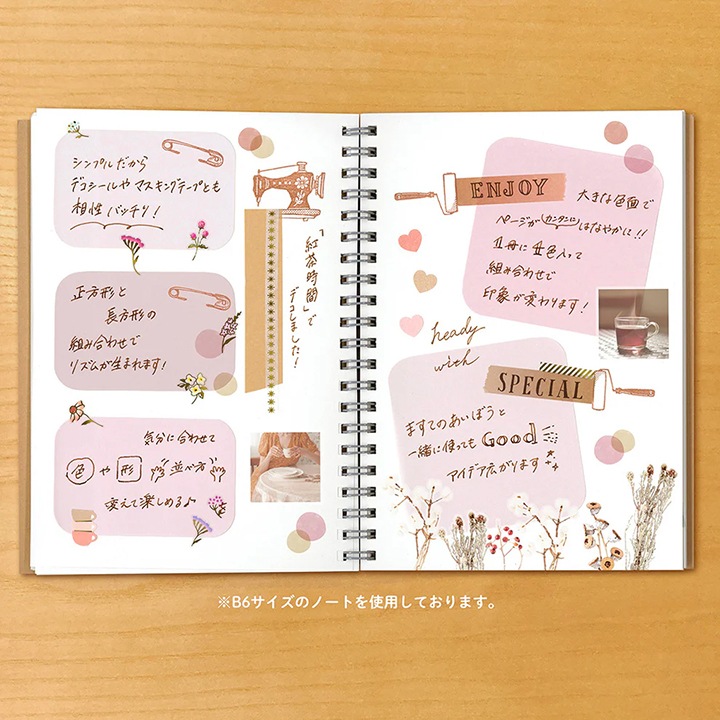 シンプルだから
デコシールや マスキングテープとも
相性 バッチリ！
正方形と
長方形の
組み合わせで
リズムが生まれます！
気分に合わせて
色 や 形 並べ方
変えて楽しめる♪
「紅茶時間」で
デコしました！
ENJOY
大きな色面で
ページが カンタンに はなやかに!!
1冊に 4色入って
組み合わせで
印象が変わります！
heady
with
SPECIAL
ますてのあいぼうと
一緒に使っても Good
アイデア広がります
※B6サイズのノートを使用しております。